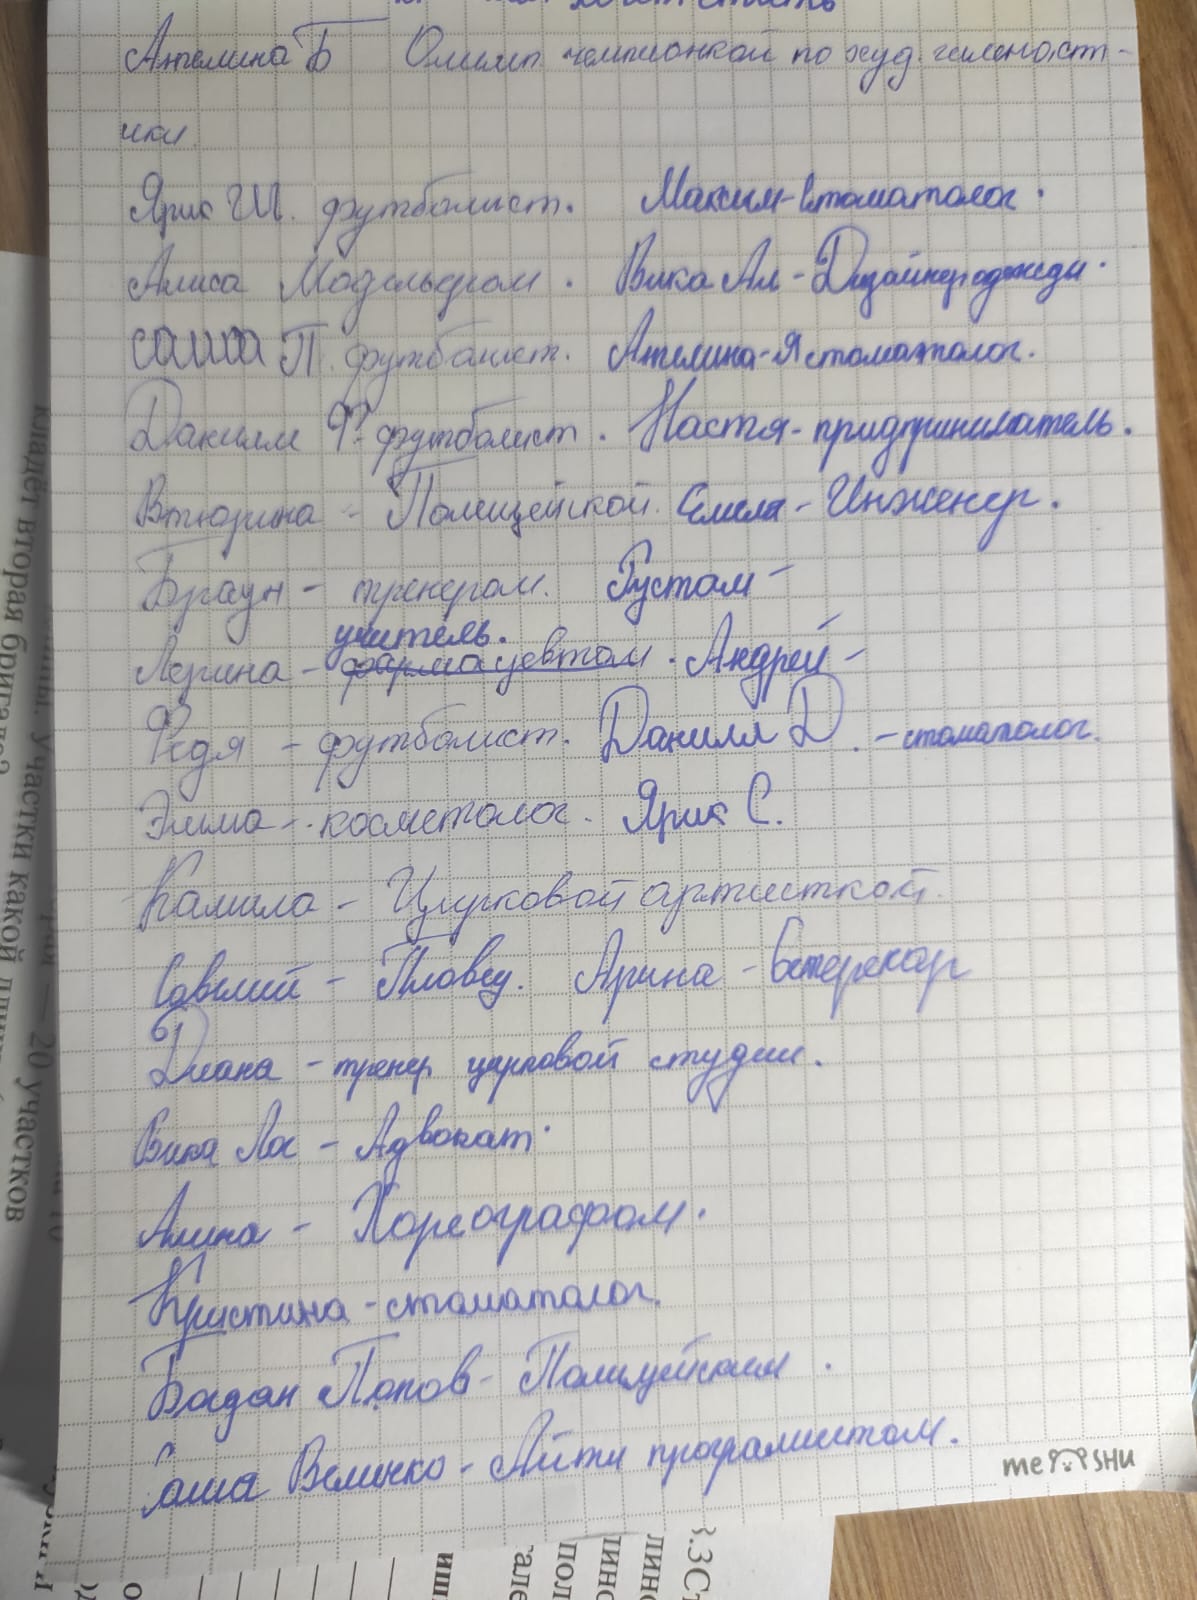 Ангелина Б Олимп. чемпионкой по худ. гимнаст-
ики.
Ярик Ш. футболист. Максим - стоматолог.
Алиса Модельером. Вика Ал - Дизайнер одежды.
Саша П. футболист. Ангелина - Я стоматолог.
Данилл Ф. футболист. Настя - придпрениматель.
Втюрина - Полицейской. Емела - Инженер.
Браун - тренером. Рустам -
учитель.
фармацевтом. Андрей -
Федя - футболист. Данилл Д. - стоматолог.
Эмма - косметолог. Ярик С.
Камила - Цирковой артисткой.
Савелий - Пловец. Арина - Ветеренар
Диана - тренер цирковой студии.
Вика Ло - Адвокат.
Алина - Хореографом.
Кристина - стоматолог.
Богдан Попов - Полицейским.
Саша Величко - Айти програмистом.
meSHU
кладёт вторая бригада?
участки какой
20 участков